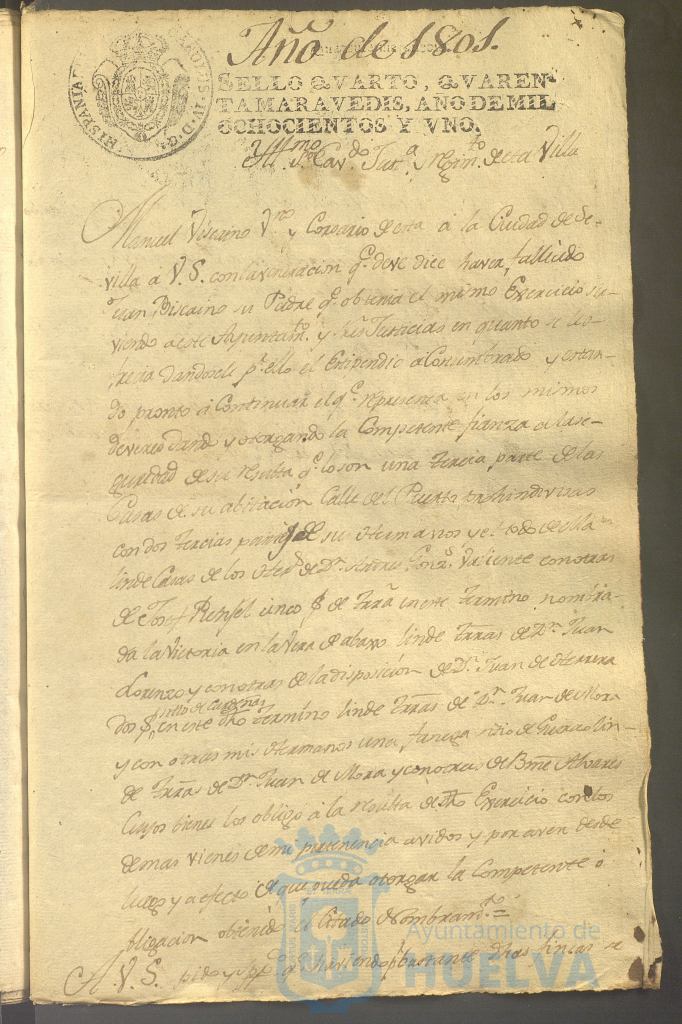 Año de 1801.
HISPANIAR CAROLUS IV D G
SELLO QVARTO, QVAREN-
TA MARAVEDIS, AÑO DE MIL
OCHOCIENTOS Y VNO.
Yllmo. Sr. Cavdo. Justa. y Regimto. de esta Villa
Manuel Viscaino Vno. y Corsario de esta á la Ciudad de Se-
villa a V.S. con la veneracion qe. deve dice haver fallecido
Juan Viscaino su Padre qe. obtenia el mismo Exercicio sir-
viendo a este Ayuntamto. y Justicias en quanto se
dandosele pr. ello el Estipendio acostumbrado y estan-
do pronto á Continuar el qe. representa en los mismos
deveres dando y otorgando la Competente fianza a la se-
guridad de su resulta qe. lo son una tercia parte de las
Casas de su abitación Calle del Puerto prohindivisas
con dos tercias partes de su Hermanos y el todo de ella
linde Casas de los Hers. de Dn. Gonzs. Valiente con otras
de Josef cinco de trra. en este termino nombra-
da la Victoria en la Vera de abaxo linde trras de Dn. Juan
Lorenzo y con otras de la disposicion de Dn. Juan de Herrera
sitio de Cardenas
dos en este dho termino linde trras. de Dn. Juan de Mora
y con otras mis Hermanos una fanega sitio de lin-
de trras de Dn. Juan de Mora y con otras de Bme Alvares
Cuyos bienes los obligo á la resulta de dho Exercicio con los
demas vienes de mi pertenencia avidos y por aver desde
luego y a efecto de que pueda otorgar la Competente o
bligacion obtenido el Citado Nombramto. =
A V.S. pido y suppco. qe. haviendo pr. bastante dhas fincas a
Ayuntamiento de
HUELVA